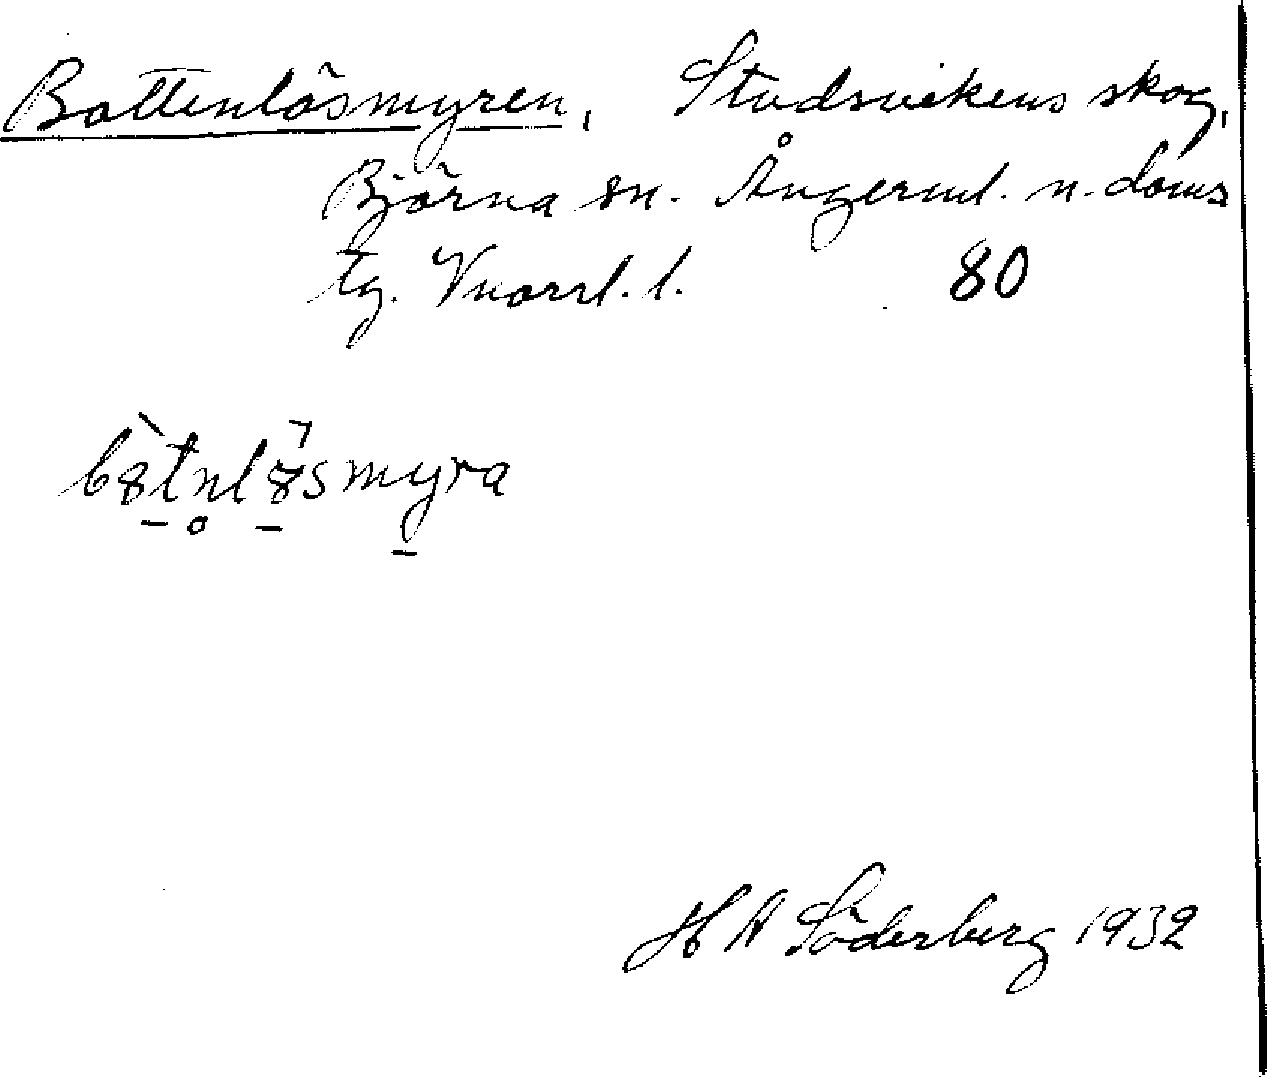 Bottenlösmyren, Studsvikens skog,
Björna sn. Ångerml. n. doms
tg. Vnorrl. l. 80
bȣtn̥lȣsmyra
H A Söderberg 1932